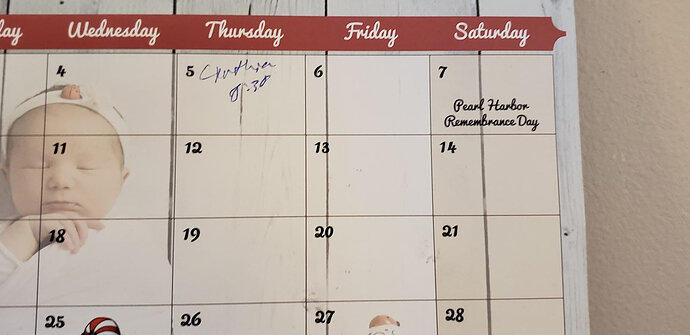 day Wednesday Thursday Friday Saturday
4 5 Cynthia 6 7
8:30
Pearl Harbor
Remembrance Day
11 12 13 14
18 19 20 21
25 26 27 28